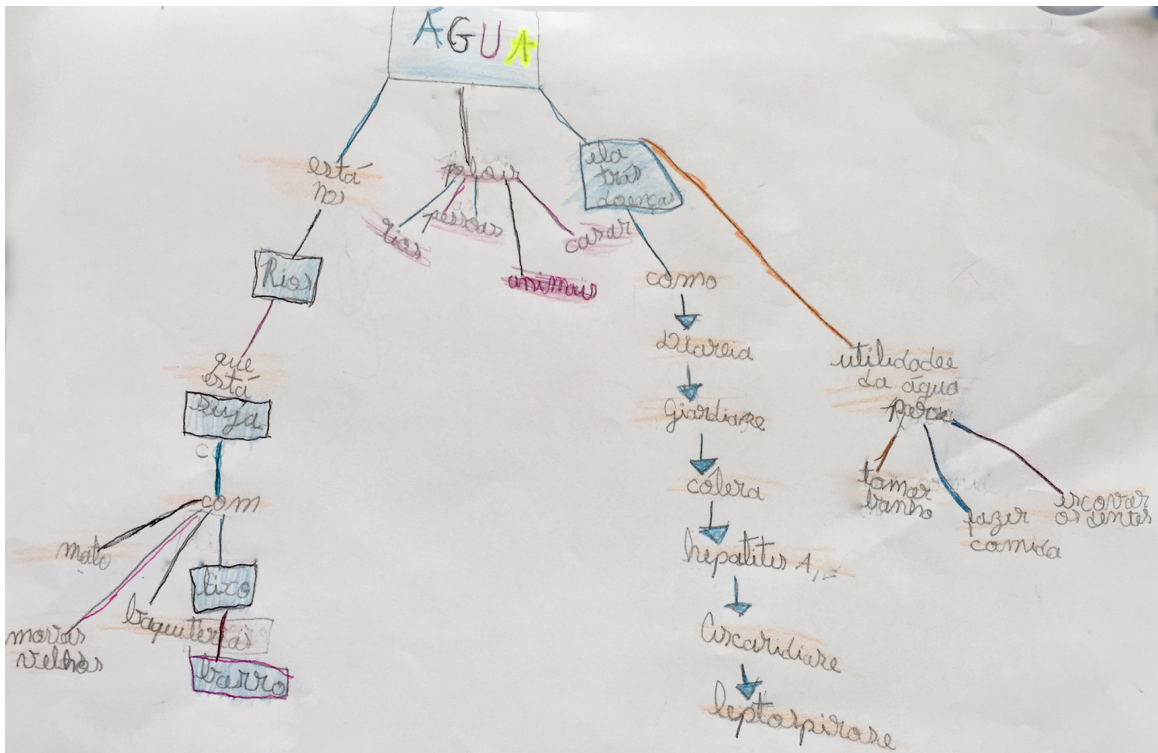 ÁGUA
está
nos
Rios
que
está
suja
com
mato
baquiterias
lixo
barro
velhos
rios
pessoas
animais
casas
ela
trás
doenças
como
giardiaze
cólera
hepatites A,
Ascaridiaze
leptospiroze
utilidades
da água
para
tomar
banho
fazer
comida
escovar
os dentes